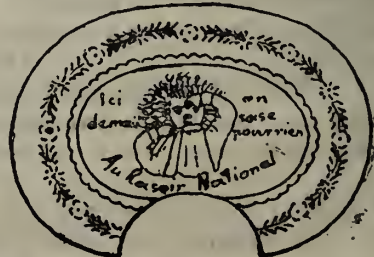 Ici
demai
on
rase
pourrien
Au Rasoir National